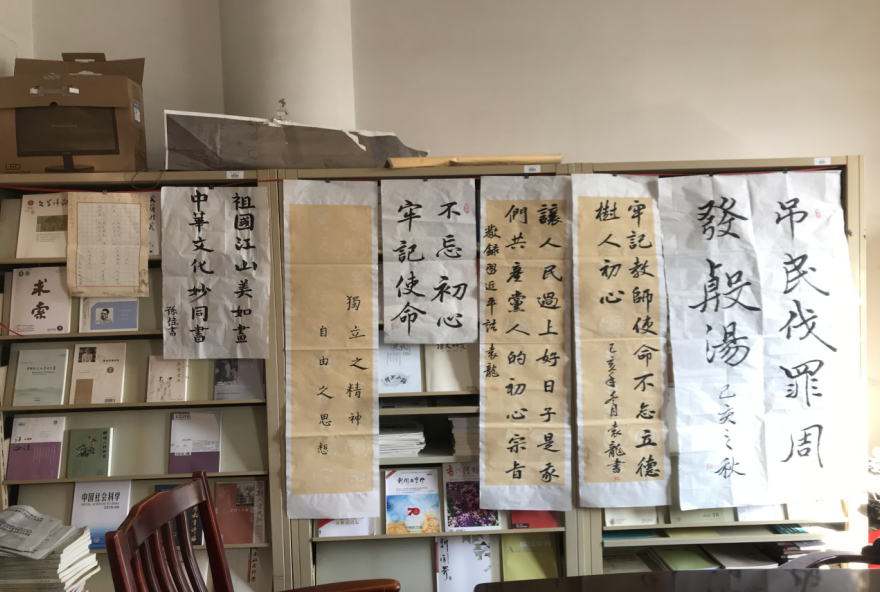 LED
求索
中国社会科学
祖國江山美如畫
中華文化妙同書
獨立之精神
自由之思想
不忘初心
牢記使命
70
讓人民過上好日子是我
們共產黨人的初心宗旨
敬錄習近平話 袁龍
牢記教師使命不忘立德
樹人初心
己亥年 月袁龍書
吊民伐罪周
發殷湯
己亥之秋